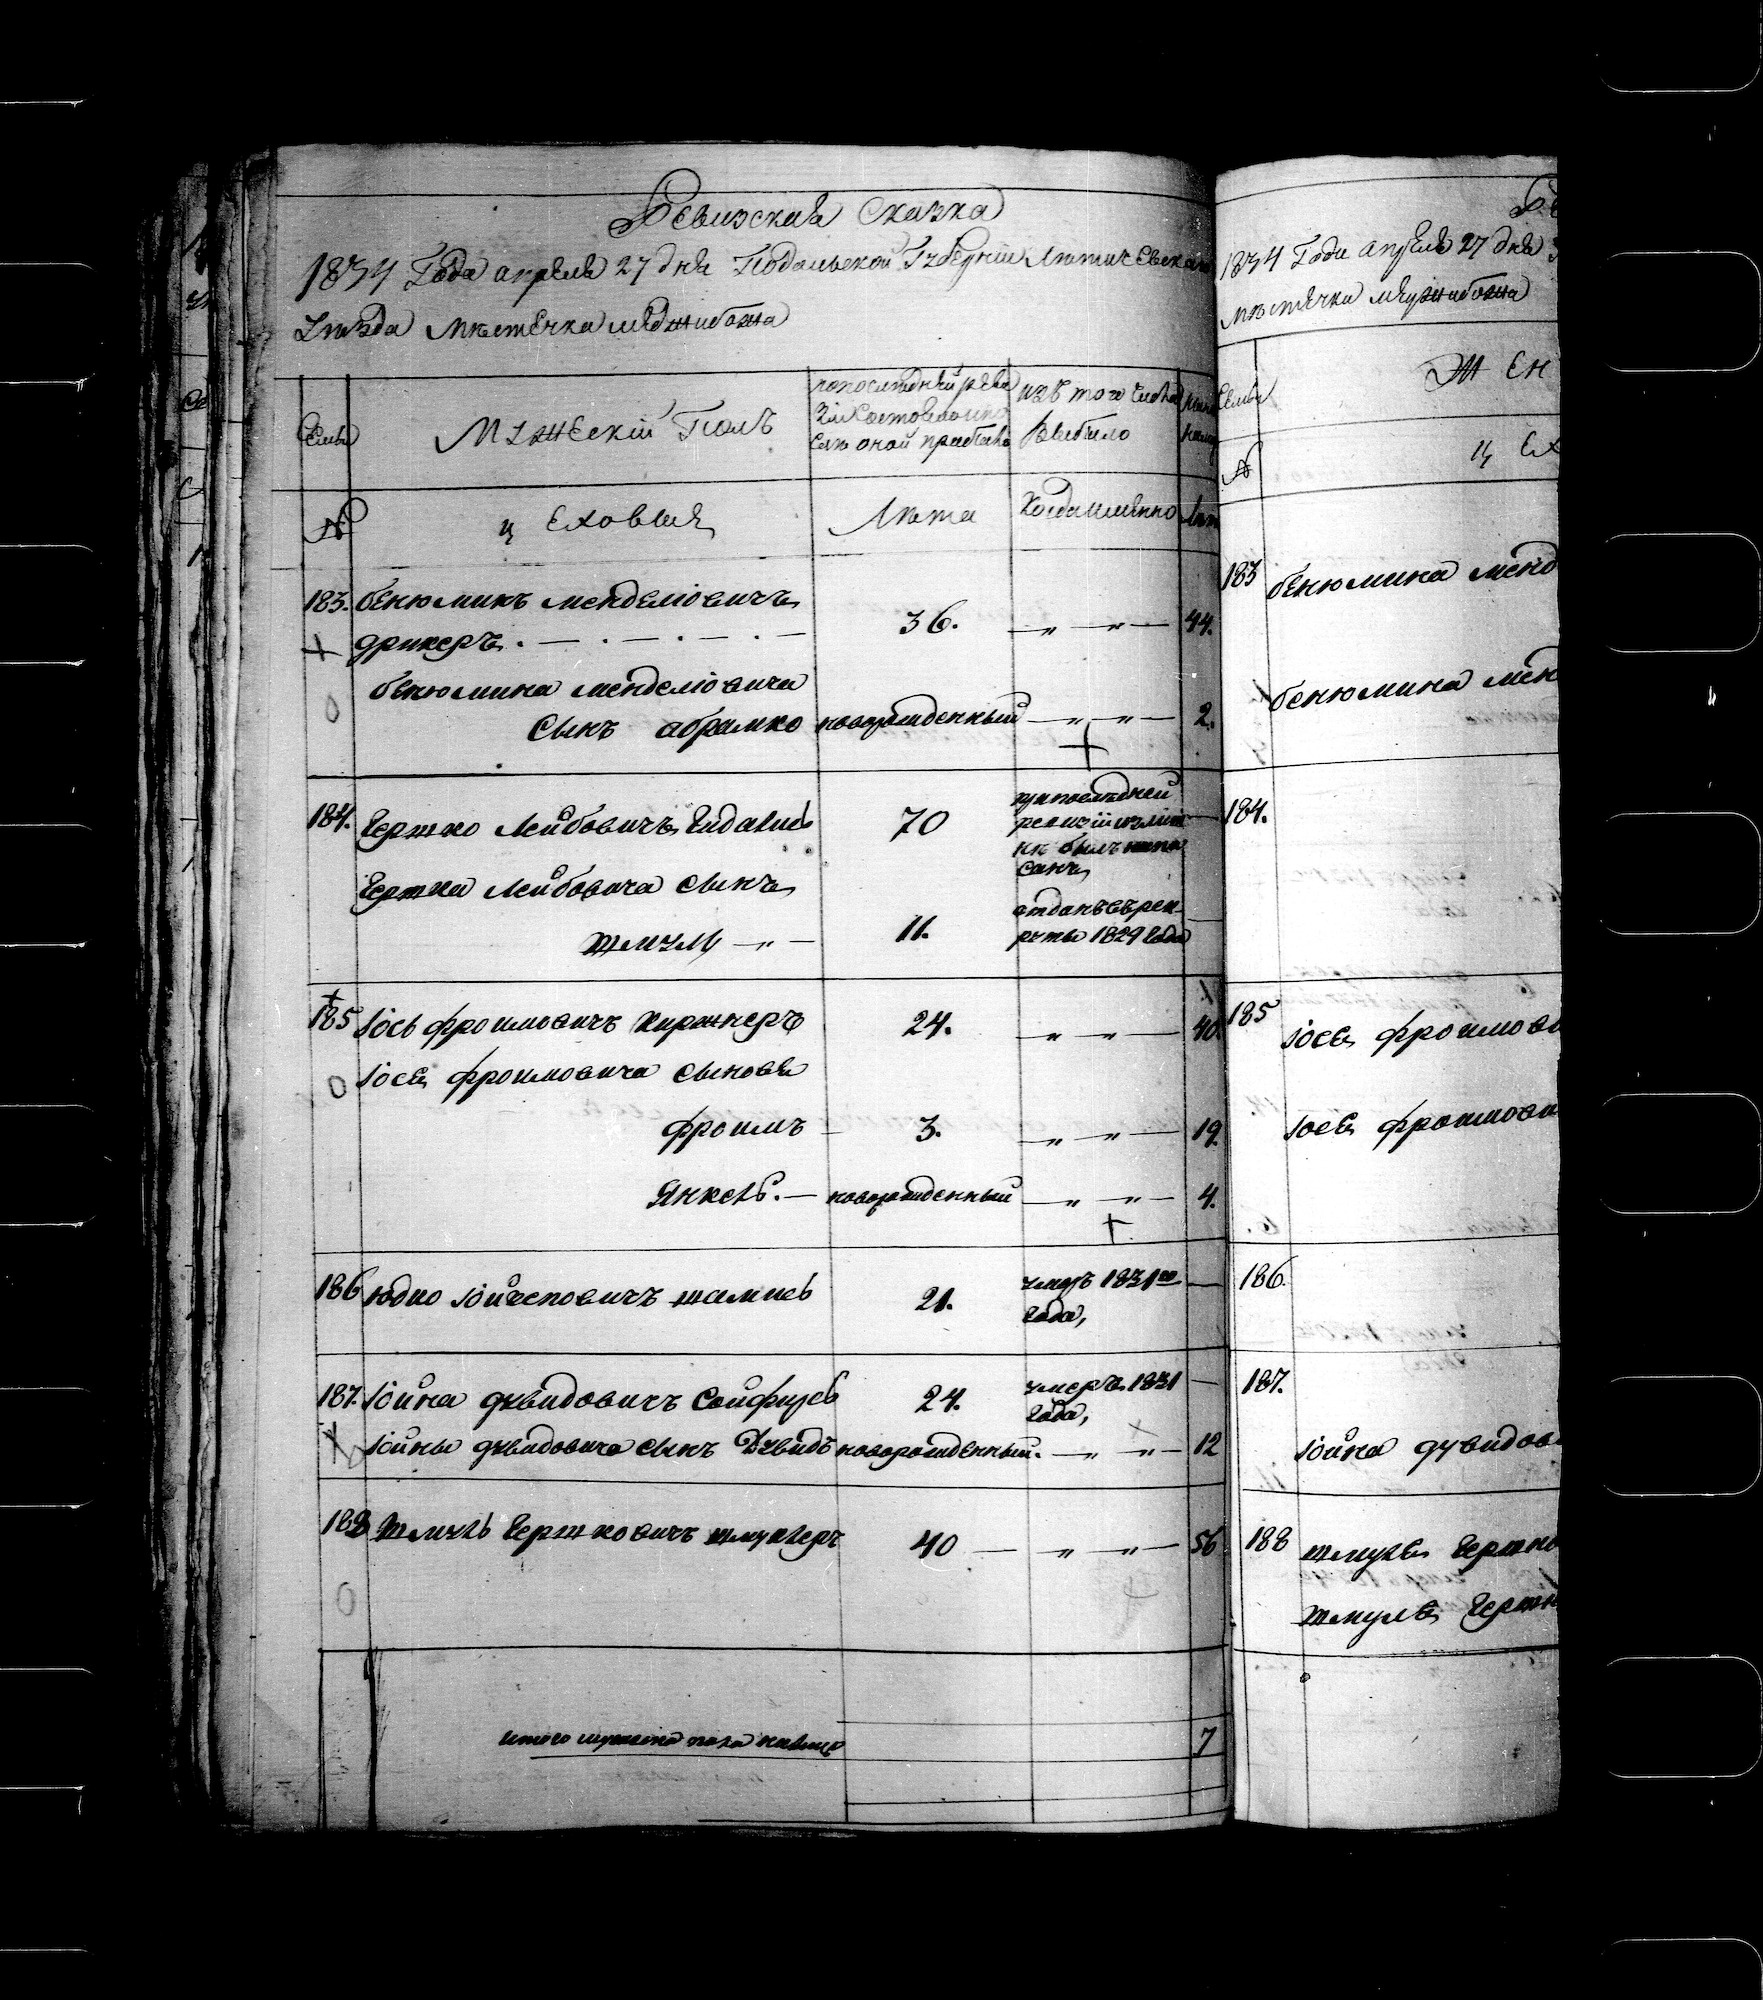 Ревизская Сказка
1834 Года апреля 27 дня Подольской Губернии Летичевскаго
Уезда Местечка Меджибожа
Семьи
Мужеский Полъ
по последней реви
зии Состояло и по
сле оной прибыло
изъ того числа
Выбыло
№
Цеховыя
Лета
Когда именно
Лет
183. Бенюминъ Менделіовичъ
Дрикеръ. — . — . — . —
36.
— „ — „ —
44.
Бенюмина Менделіовича
Сынъ Абрамко
новорожденный
— „ — „ —
2.
184. Гершко Лейбовичъ
70
при последней
ревизіи
былъ напи
санъ
Гершка Лейбовича сынъ
Шмуль — „ —
11.
отданъ въ рек
руты 1829 Года
185 Іось Фроимовичъ Киржнеръ
24.
— „ — „ —
40.
Іося Фроимовича сыновья
Фроимъ —
3.
— „ — „ —
19.
Янкель. —
новорожденный
— „ — „ —
4.
186 Юдко шамись
21.
умеръ 1831го
Года,
—
187. Іойна Дувидовичъ
24.
умеръ 1831
Года,
—
Іойны Дувидовича сынъ Дувидъ
новорожденный.
— „ — „ —
12
188 Шмуль Гершковичъ
40
— „ — „ —
56
итого мужеска пола налицо
7
1834 Года апреля 27 дня
местечка Меджибожа
Семьи
№
Жен
Цех
183 Бенюмина Менд
Бенюмина Мен
184.
185 Іося Фроимови
Іося Фроимови
186.
187.
Іойна Дувидов
188 Шмуля Гершко
Шмуля Гершк